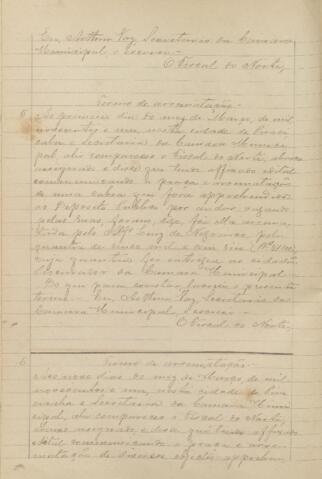 Eu, Arthur Vaz, Secretario da Camara
Municipal, o escrevi.-
O Fiscal do Norte,
Termo de arrematação.-
5
Ao primeiro dia do mez de Março, de mil
novecentos e um, nesta cidade de Piraci
caba e Secretaria da Camara Munici
pal, ahi compareceu o Fiscal do Norte, abaixo
assignado, e disse que tendo affixado edital
communicando a praça e arrematação
de uma cabra que fora apprehendida
ao Deposito Publico por andar vagando
pelas ruas,
pelo Luiz de
quantia de cinco mil e cem reis
cuja quantia foi entregue ao cidadão
Procurador da Camara Municipal.-
Do que para constar lavrei o presente
termo.- Eu, Arthur Vaz, Secretario da
Camara Municipal, escrevi.-
O Fiscal do Norte,
6
Termo de arrematação.-
Aos nove dias do mez de Março, de mil
novecentos e um, nesta cidade de Pira
cicaba e Secretaria da Camara Muni
cipal, ahi compareceu o Fiscal do Norte,
abaixo assignado, e disse que tendo affixado
edital communicando a praça e arre
matação de diversos objectos apprehen